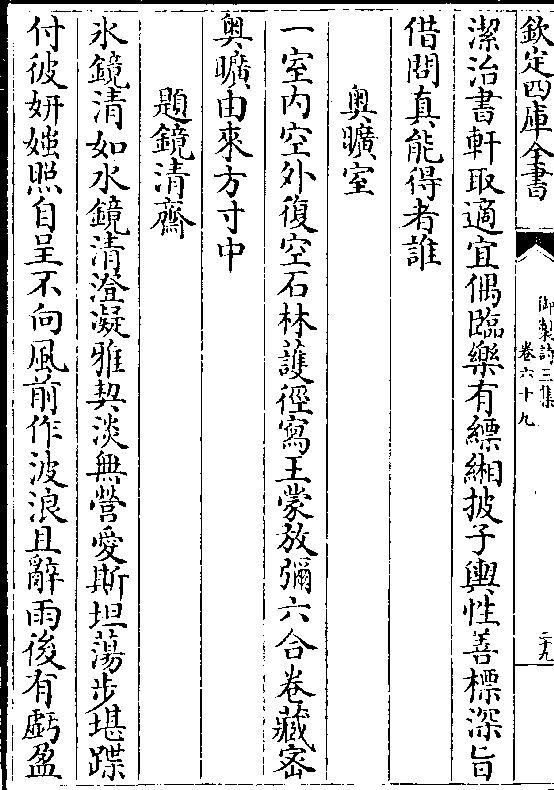 欽定四庫全書
御製詩三集
卷六十九
二十九
潔治書軒取適宜偶臨樂有縹緗披子輿性善標深旨
借問真能得者誰
奧曠室
一室内空外復空石林護徑寫王蒙放彌六合卷藏密
奧曠由來方寸中
題鏡清齋
氷鏡清如水鏡清澄凝雅契淡無營愛斯坦蕩步堪蹀
付彼妍媸照自呈不向風前作波浪且辭雨後有虧盈